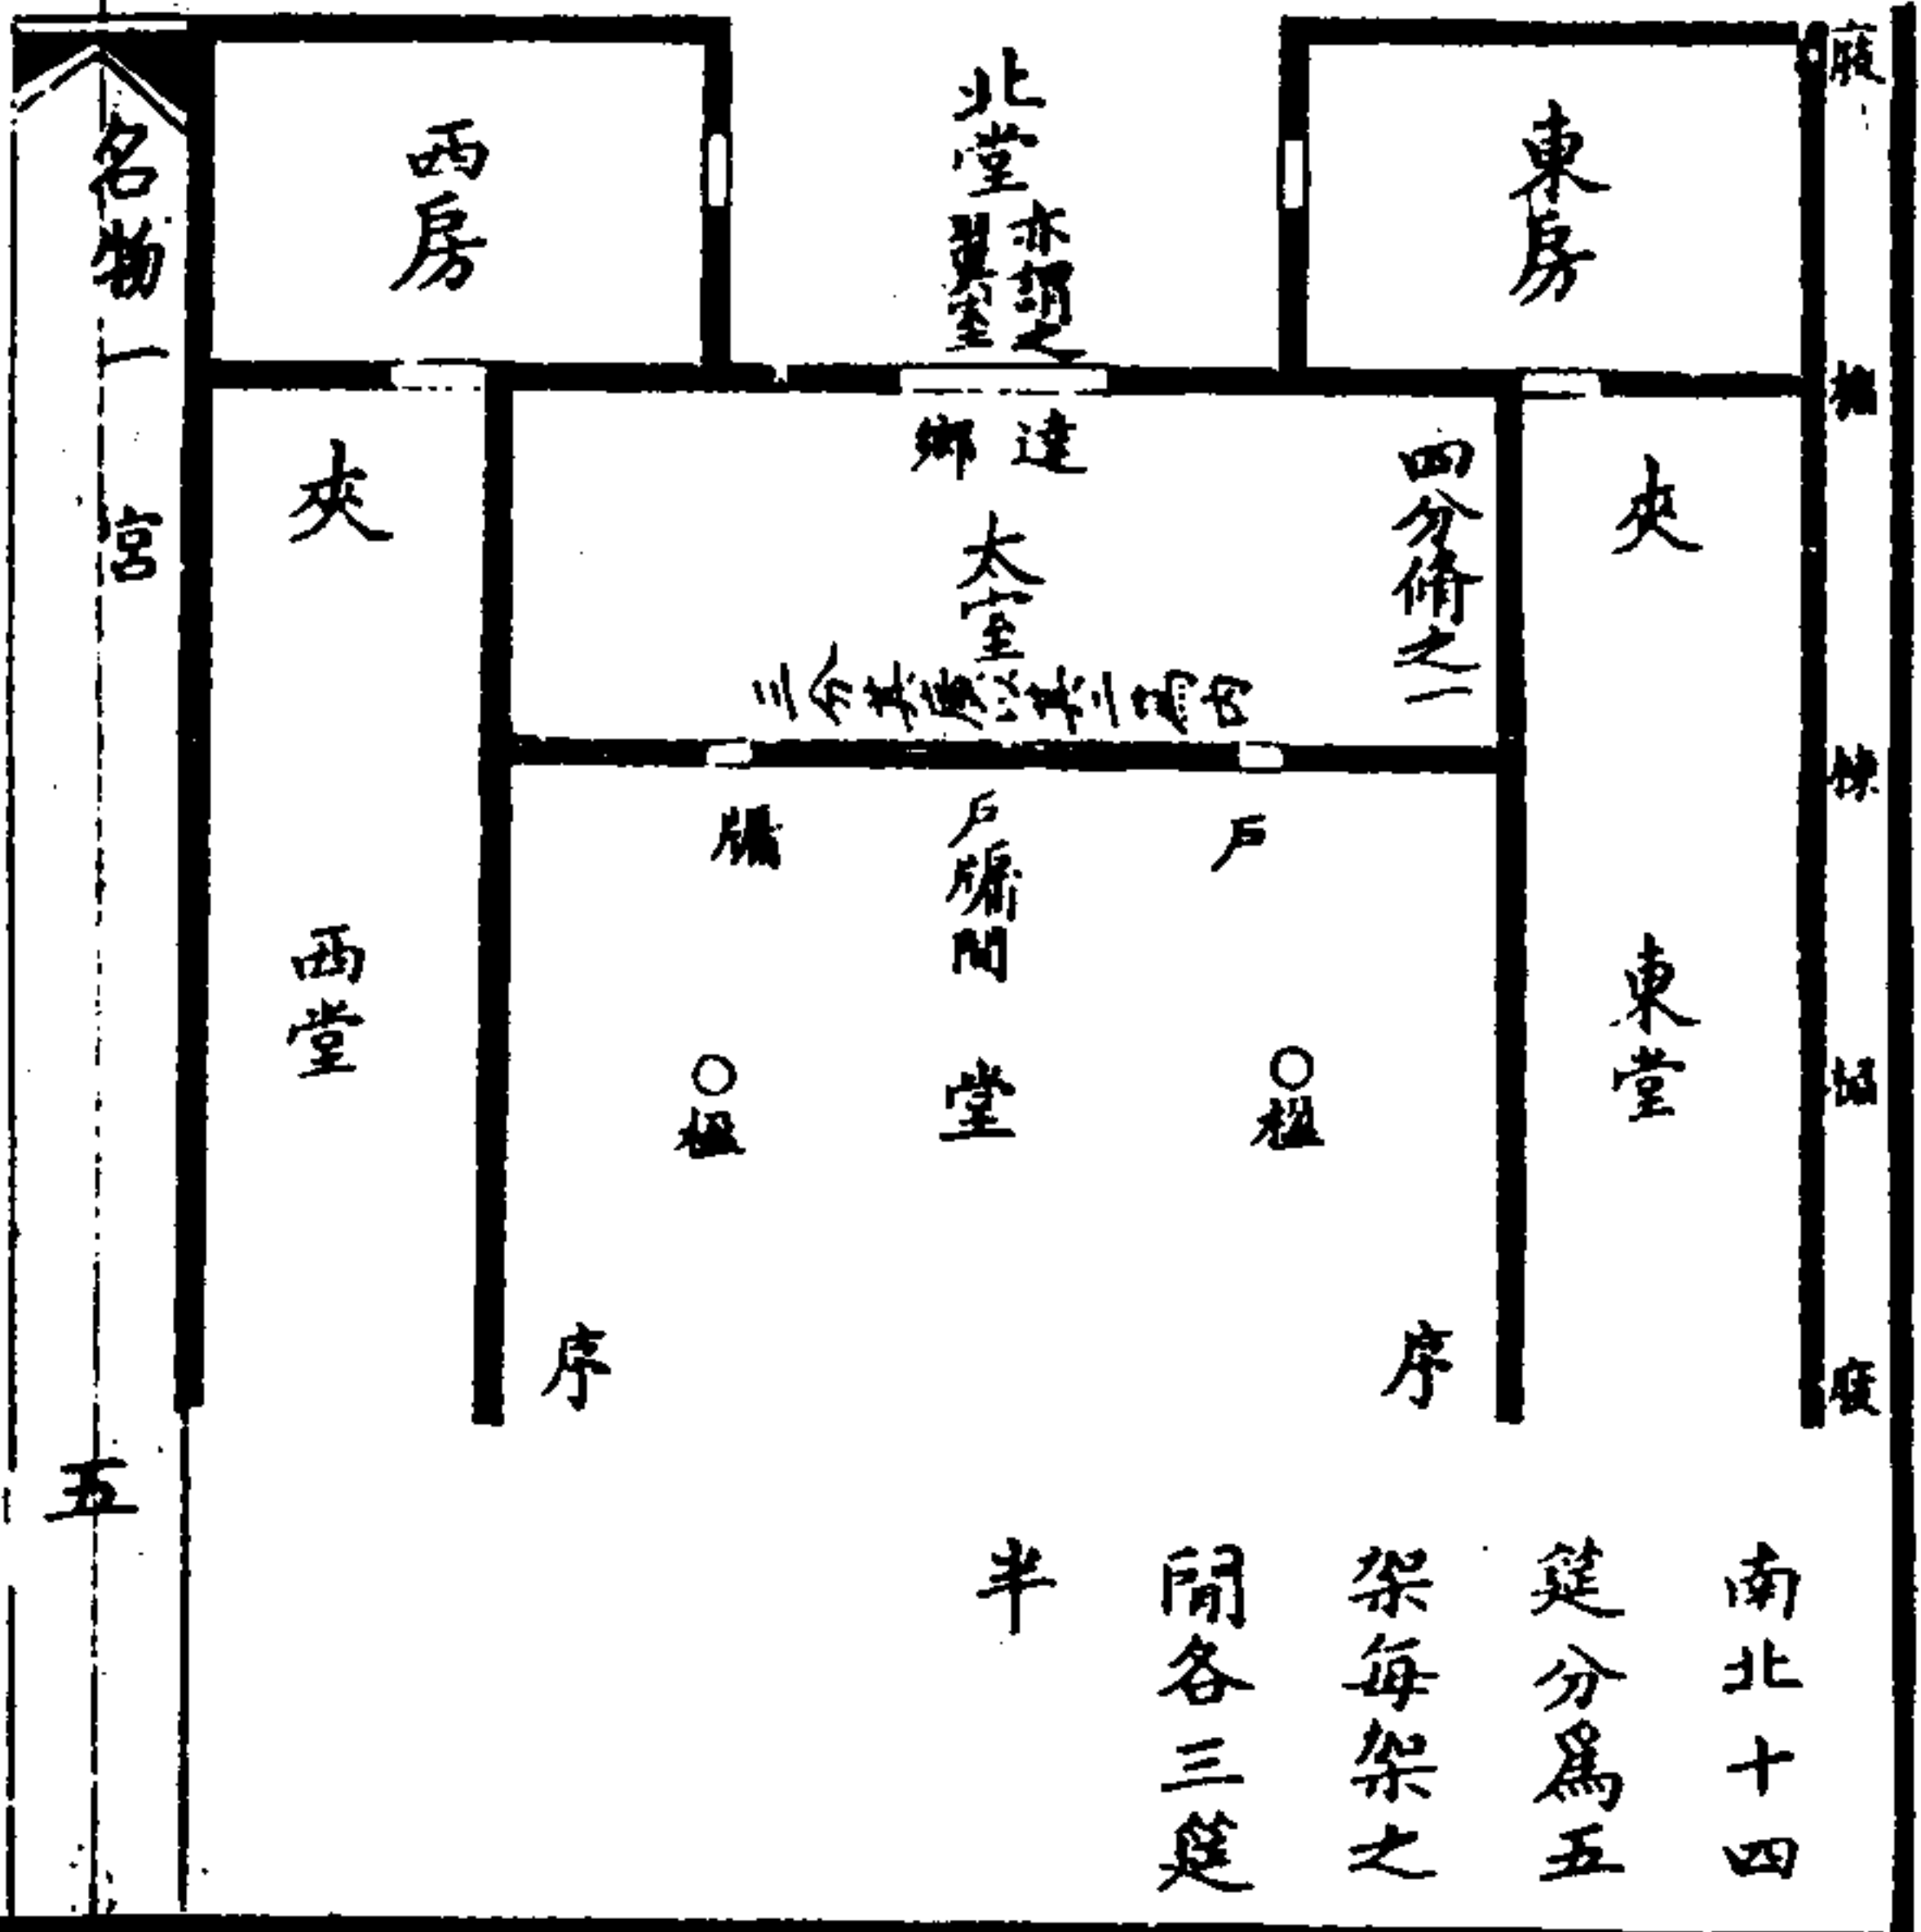 東房
北堂
亦謂之
翼室
西房
夾
四分脩之一
達鄉
太室
夾
戶
戶牖間
牖
東堂
楹
堂
楹
西堂
序
序
南北十四
筵分為五
架每架之
間各三筵
半
庪
棟
楣
庪
名物一
宮
五